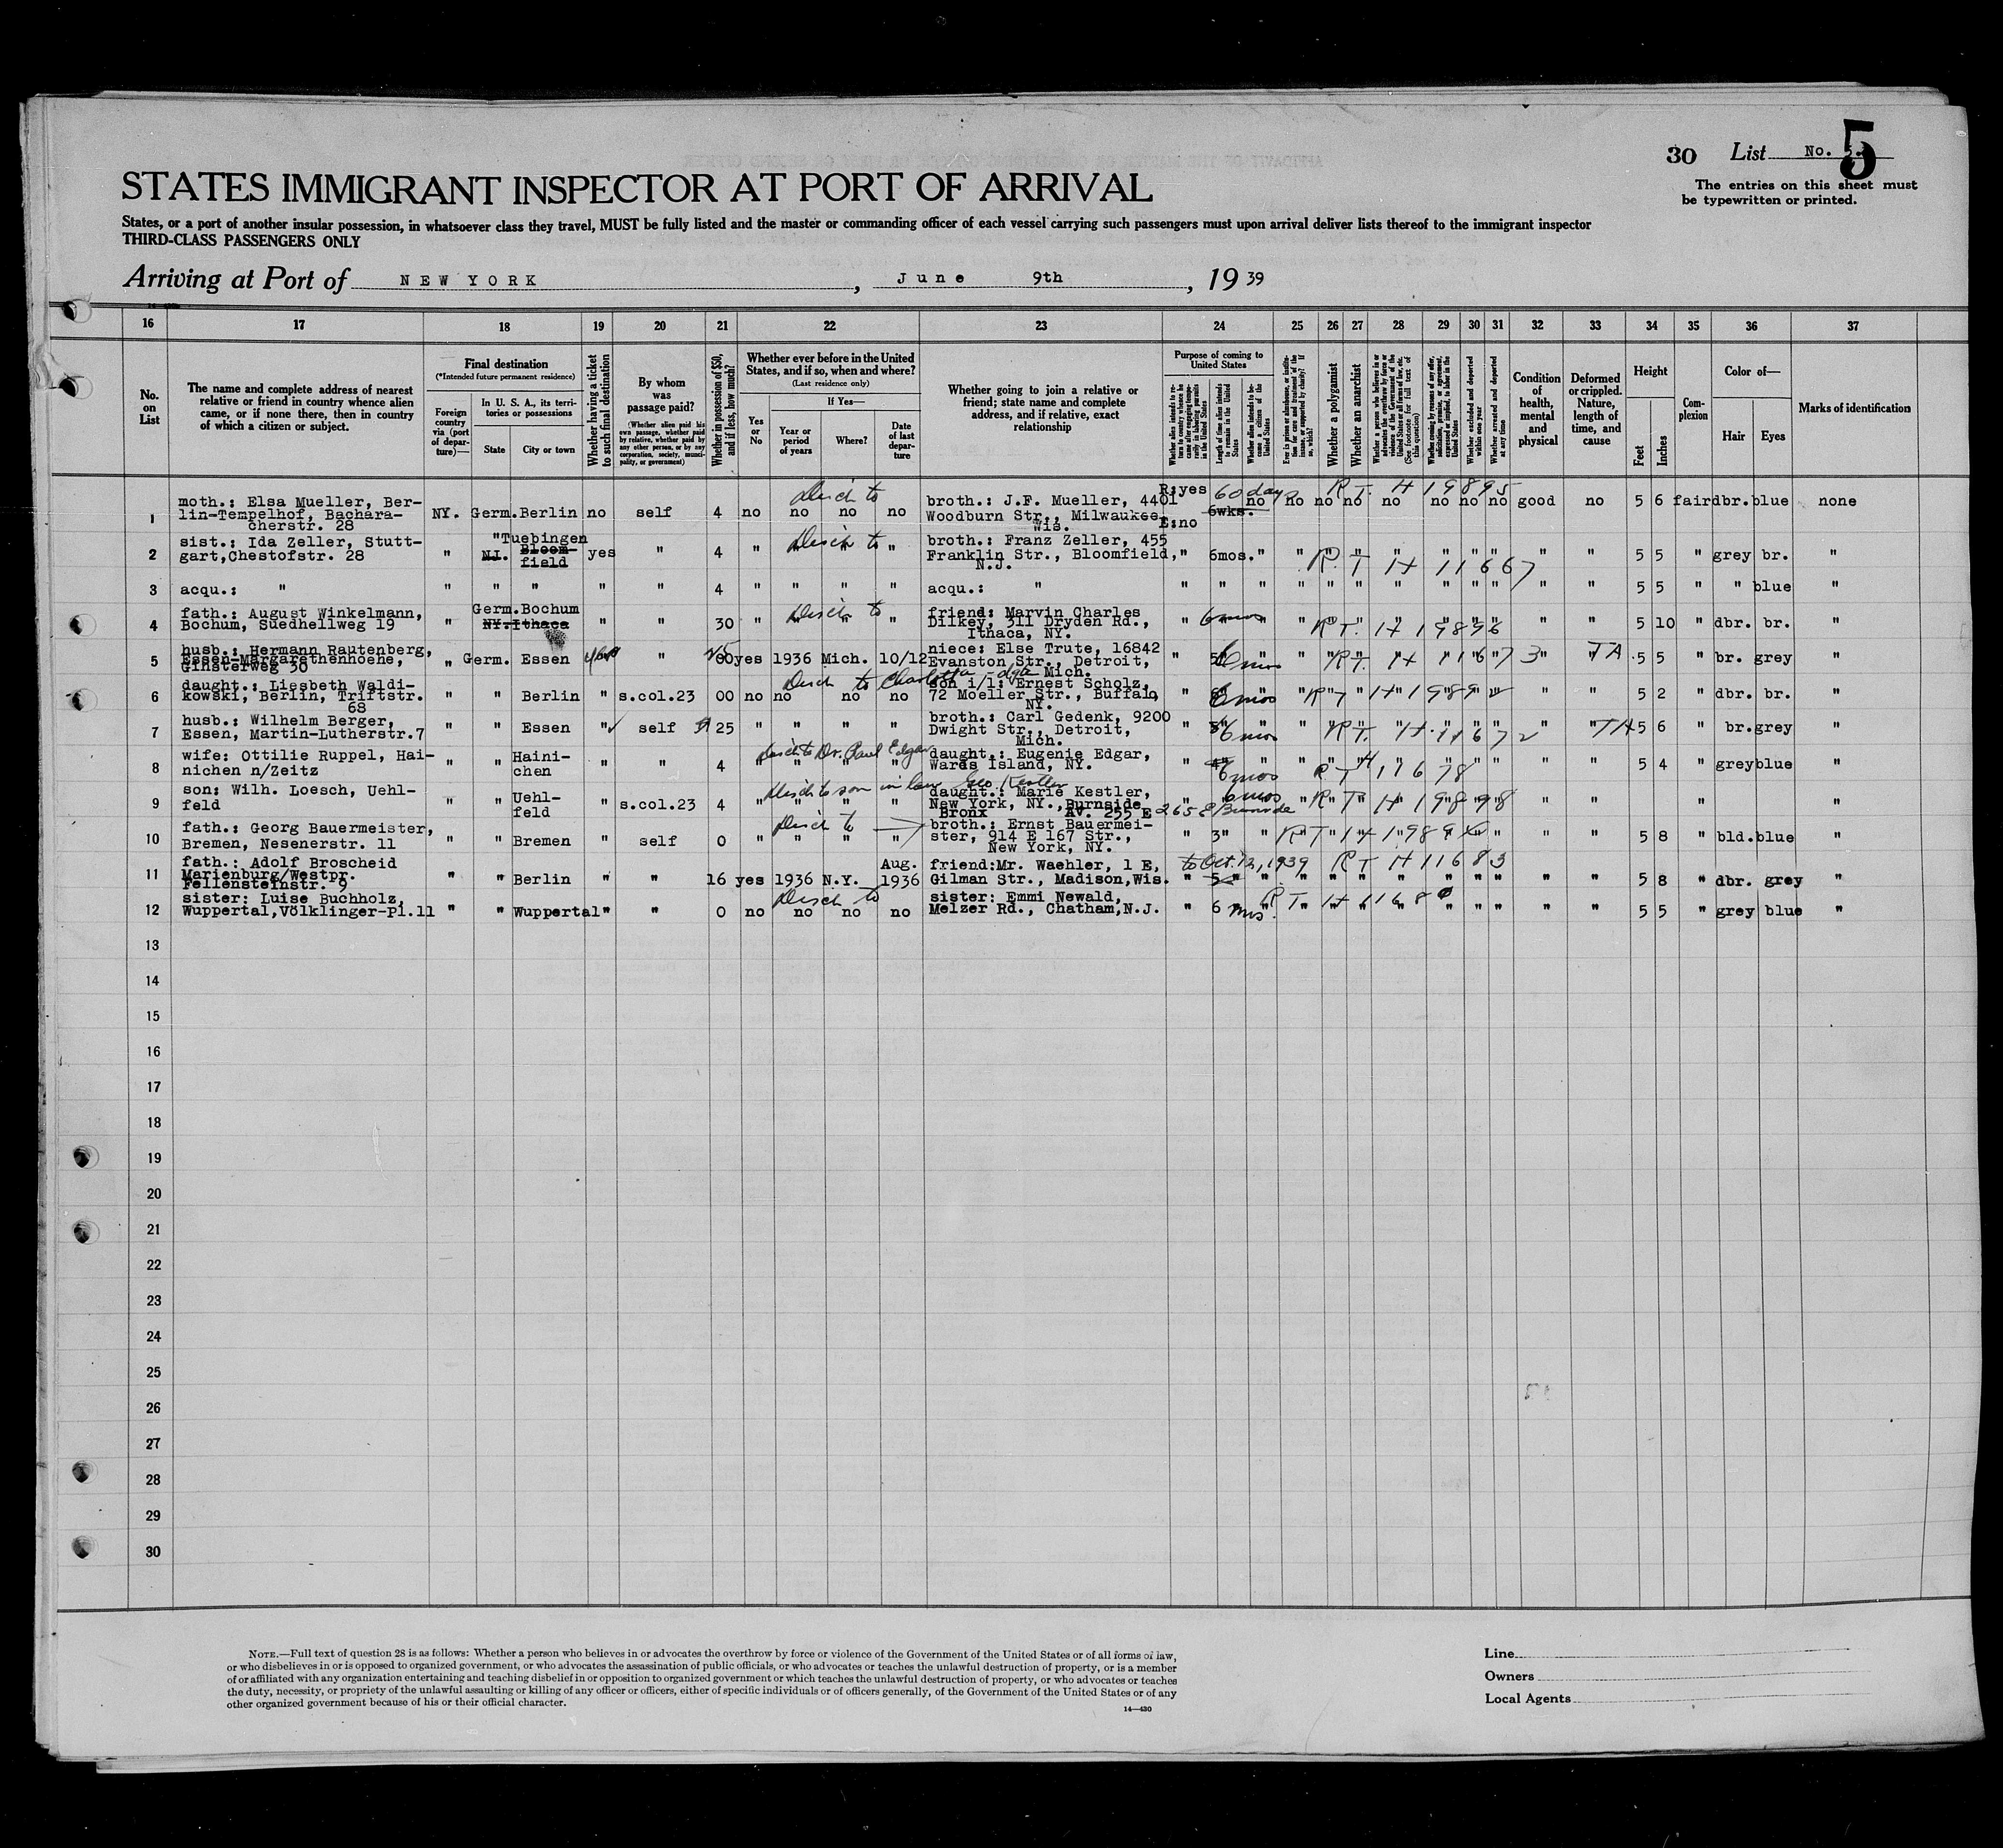 30 List No. 5.
5
The entries on this sheet must
be typewritten or printed.
STATES IMMIGRANT INSPECTOR AT PORT OF ARRIVAL
States, or a port of another insular possession, in whatsoever class they travel, MUST be fully listed and the master or commanding officer of each vessel carrying such passengers must upon arrival deliver lists thereof to the immigrant inspector
THIRD-CLASS PASSENGERS ONLY
Arriving at Port of NEW YORK, June 9th, 1939
16 17 18 19 20 21 22 23 24 25 26 27 28 29 30 31 32 33 34 35 36 37
No. on List
The name and complete address of nearest relative or friend in country whence alien came, or if none there, then in country of which a citizen or subject.
Final destination
(*Intended future permanent residence)
Foreign country via (port of departure)—
In U. S. A., its territories or possessions
State
City or town
Whether having a ticket to such final destination
By whom was passage paid?
(Whether alien paid his own passage, whether paid by relative, whether paid by any other person, or by any corporation, society, municipality, or government)
Whether in possession of $50, and if less, how much?
Whether ever before in the United States, and if so, when and where?
(Last residence only)
Yes or No
If Yes—
Year or period of years
Where?
Date of last departure
Whether going to join a relative or friend; state name and complete address, and if relative, exact relationship
Purpose of coming to United States
Length of time alien intends to remain in the United States
Whether alien intends to become a citizen of the United States
Whether a polygamist
Whether an anarchist
Whether excluded and deported within one year
Whether arrested and deported at any time
Condition of health, mental and physical
Deformed or crippled. Nature, length of time, and cause
Height
Feet
Inches
Complexion
Color of—
Hair
Eyes
Marks of identification
1 moth.: Elsa Mueller, Ber-
lin-Tempelhof, Bachara-
cherstr. 28 NY. Germ. Berlin no self 4 no no no no broth.: J.F. Mueller, 4401
Woodburn Str., Milwaukee,
Wis. R:yes E:no 60 days 6wks. no no no no no no no no good no 5 6 fair dbr. blue none
R T. H 19895
2 sist.: Ida Zeller, Stutt-
gart, Chestofstr. 28 " " Tuebingen NJ. Bloom-
field yes " 4 " " " " broth.: Franz Zeller, 455
Franklin Str., Bloomfield,
N.J. " 6mos. " " " " " " " " " " 5 5 " grey br. "
R. T H 11667
3 acqu.: " " " " " " 4 " " " " acqu.: " " " " " " " " " " " " " 5 5 " " blue "
4 fath.: August Winkelmann,
Bochum, Suedhellweg 19 " Germ. Bochum NY. Ithaca " " 30 " " " " friend: Marvin Charles
Dilkey, 311 Dryden Rd.,
Ithaca, NY. " 6 mos " " " 5 10 " dbr. br. "
R T. H 19896
5 husb.: Hermann Rautenberg,
Essen-Margarethenhoehe,
Ginsterweg 30 " Germ. Essen " 00 yes 1936 Mich. 10/12 niece: Else Trute, 16842
Evanston Str., Detroit,
Mich. " 6 mos " " T A 5 5 " br. grey "
R T. H 1167 3
6 daught.: Liesbeth Waldi-
kowski, Berlin, Triftstr.
68 " " Berlin " s.col.23 00 no no no no son i/l: Ernest Scholz,
72 Moeller Str., Buffalo,
NY. " 6 mos " " " 5 2 " dbr. br. "
7 husb.: Wilhelm Berger,
Essen, Martin-Lutherstr.7 " " Essen " self 25 " " " " broth.: Carl Gedenk, 9200
Dwight Str., Detroit,
Mich. " 6 mos " " T A 5 6 " br. grey "
8 wife: Ottilie Ruppel, Hai-
nichen n/Zeitz " " Haini-
chen " " 4 " " " " daught.: Eugenie Edgar,
Wards Island, NY. " 6 mos " " " 5 4 " grey blue "
Disch to Dr. Paul Edgar
R T H 11678
9 son: Wilh. Loesch, Uehl-
feld " " Uehl-
feld " s.col.23 4 " " " " daught.: Marie Kestler,
New York, NY., Burnside
Bronx AV. 255 E " 6 mos " " " " "
Disch to son in law Geo. Kestler
265 E Burnside
R T H 19898
10 fath.: Georg Bauermeister,
Bremen, Nesenerstr. 11 " " Bremen " self 0 " " " " broth.: Ernst Bauermei-
ster, 914 E 167 Str.,
New York, NY. " 3 " " " " 5 8 " bld. blue "
Disch to
11 fath.: Adolf Broscheid
Marienburg/Westpr.
Fellensteinstr. 9 " " Berlin " " 16 yes 1936 N.Y. Aug.
1936 friend: Mr. Waehler, 1 E,
Gilman Str., Madison, Wis. " 5 " " " " 5 8 " dbr. grey "
to Oct. 12, 1939 R T H 11683
12 sister: Luise Buchholz,
Wuppertal, Völklinger-Pl.11 " " Wuppertal " " 0 no no no no sister: Emmi Newald,
Melzer Rd., Chatham, N.J. " 6 mos. " " " 5 5 " grey blue "
Disch to
13
14
15
16
17
18
19
20
21
22
23
24
25
26
27
28
29
30
NOTE.—Full text of question 28 is as follows: Whether a person who believes in or advocates the overthrow by force or violence of the Government of the United States or of all forms of law,
or who disbelieves in or is opposed to organized government, or who advocates the assassination of public officials, or who advocates or teaches the unlawful destruction of property, or is a member
of or affiliated with any organization entertaining and teaching disbelief in or opposition to organized government or which teaches the unlawful destruction of property, or who advocates or teaches
the duty, necessity, or propriety of the unlawful assaulting or killing of any officer or officers, either of specific individuals or of officers generally, of the Government of the United States or of any
other organized government because of his or their official character.
14—430
Line
Owners
Local Agents